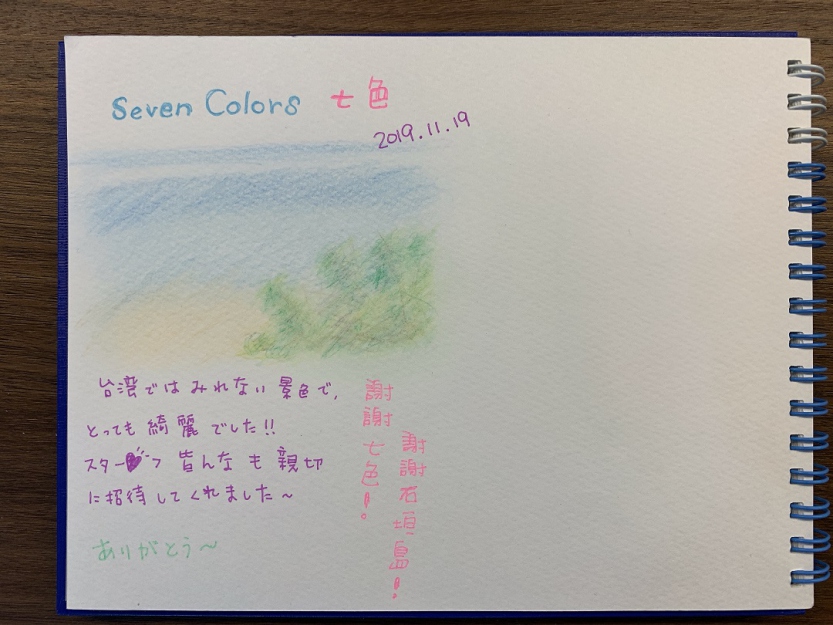 Seven Colors 七色
2019.11.19
台湾ではみれない景色で、
とっても綺麗でした!!
スターフ皆んなも親切
に招待してくれました～
ありがとう～
謝謝七色!
謝謝石垣島!